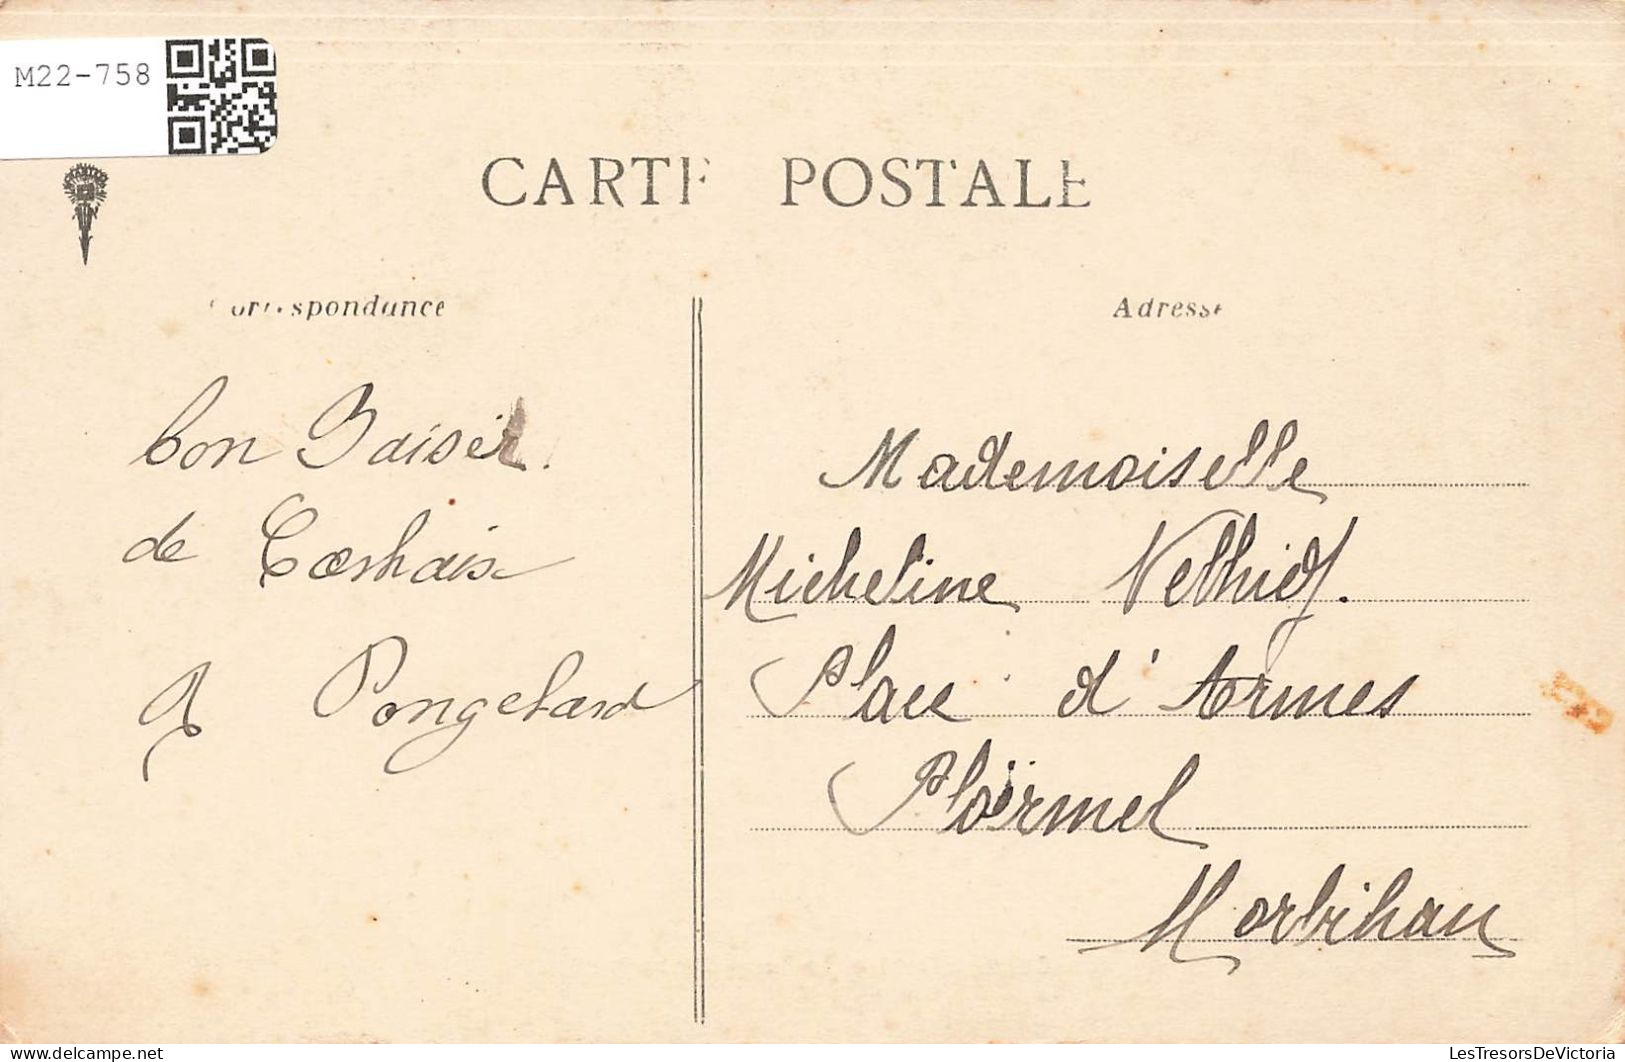 M22-758
CARTE POSTALE
Correspondance
Adresse
bon Baiser
de Carhaix
A Pongelard
Mademoiselle
Micheline
Place d'Armes
Ploërmel
Morbihan
LesTresorsDeVictoria